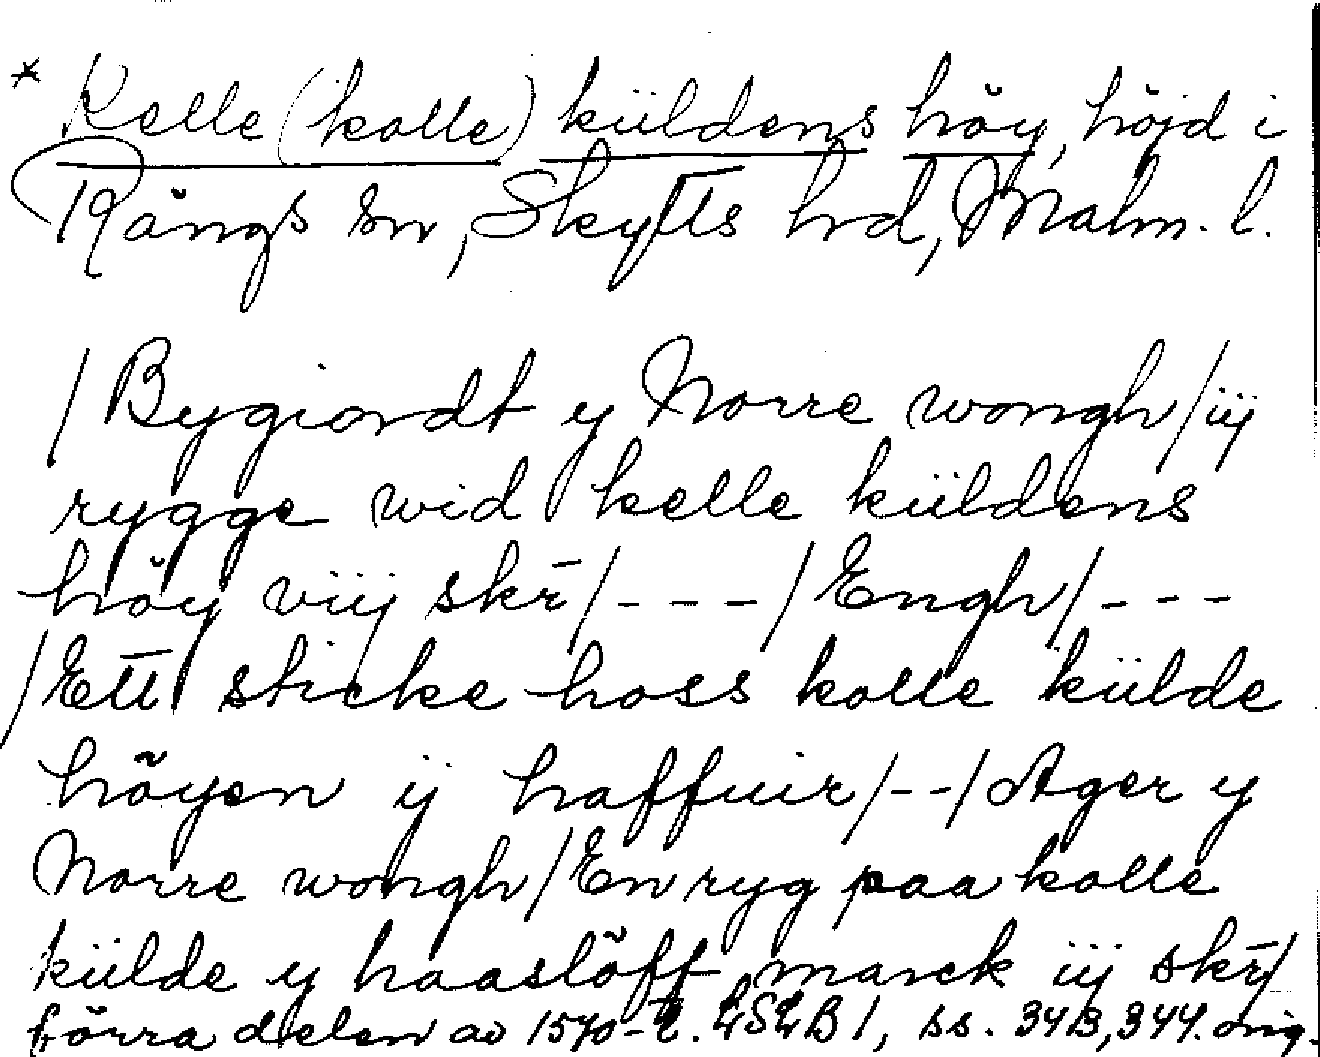 * Kelle (kolle) küldens höy, höjd i
Rängs sn, Skytts hrd, Malm. l.
/Bygiordt y Norre wongh/iij
rygge wid kelle küldens
höy viij skr̄/---/Engh/---
/Ett sticke hoss kolle külde
hõyen ij haffuir/--/Ager y
Norre wongh/En ryg paa kolle
külde y haaslõff marck iij skr̄/
förra delen av 1570-t. LSLB 1, ss. 343, 344. orig.